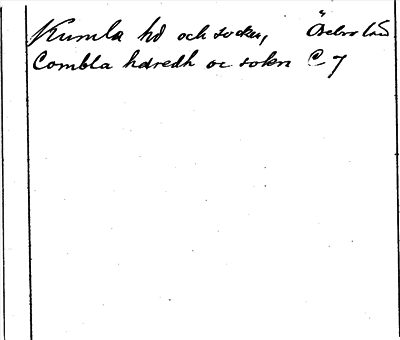 Kumla hd och socken, Örebro län
Combla haredh oc sokn C 7